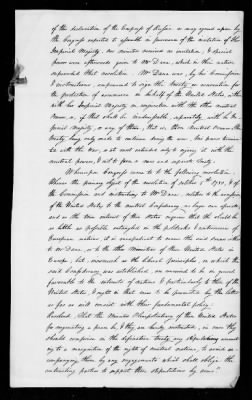 of the declaration of the Empress of Russia or may agree upon by
the Congress expected to assemble in pursuance of the invitation of this
Imperial Majesty, our minister received no invitation, & special
power were afterwards given to Mr Dana, which in their nature
superseded that resolution. Mr Dana was, by his Commission
& instructions, empowered to sign the treaty or convention for
the protection of commerce in behalf of the United States, either
with her Imperial Majesty in conjunction with the other neutral
Powers, or, if that shall be inadmissible, separately, with her Im-
perial Majesty, or any of them; that is, those Neutral Powers. The
Treaty being only made to continue during the war, his power termina-
ted with the war, or at most extended only to signing it with the
neutral powers, & not to form a new and separate Treaty.
Whereupon Congress came to the following resolution.
Whereas the primary object of the resolution of October 5th 1780, & of
the Commission and instructions to Mr Dana, relative to the accession
of the United States to the neutral Confederacy, no longer can operate,
and as the true interest of these states requires that they should be
as little as possible entangled in the politicks & controversies of
European nations, it is inexpedient to renew the said powers either
to Mr Dana, or to the other Ministers of these United States in
Europe; but, inasmuch as the liberal principles, on which the
said Confederacy was established, are conceived to be in general
favourable to the interests of nations, & particularly to those of the
United States, & ought in that view to be promoted by the latter
as far as will consist with their fundamental policy:
Resolved, That the Ministers Plenipotentiary of these United States
for negociating a peace be, & they are hereby instructed, in case they
should comprise in the definitive treaty any stipulations amount-
ing to a recognition of the rights of neutral nations, to avoid ac-
companying them by any engagements which shall oblige the
contracting parties to support those stipulations by arms.